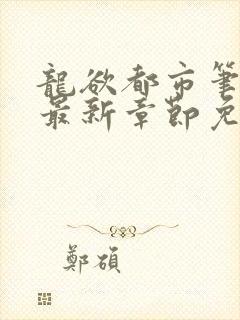 龍欲都市筆
最新章節免
鄭碩